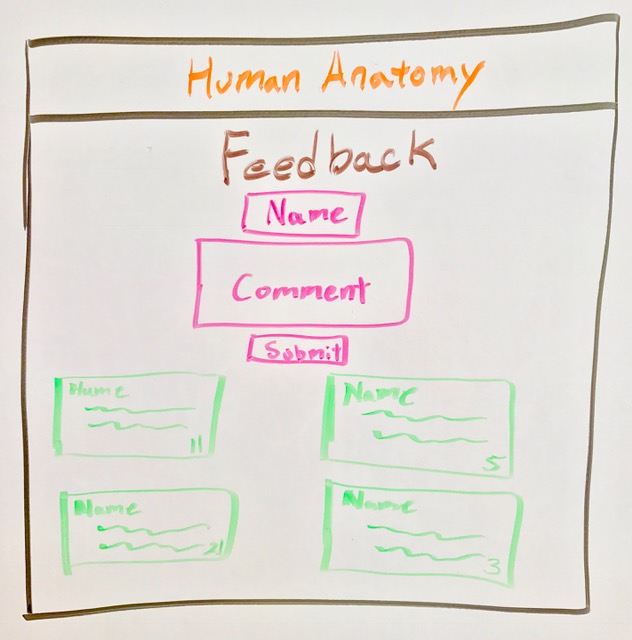 Human Anatomy
Feedback
Name
Comment
Submit
Name
11
Name
5
Name
21
Name
3